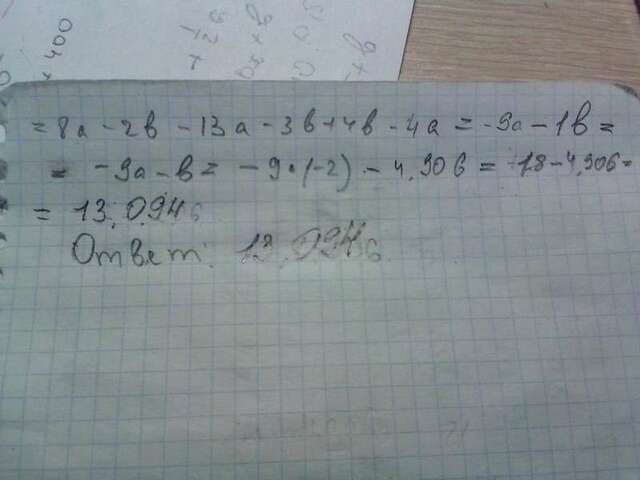 × 400
= 8a - 2b - 13a - 3b + 4b - 4a = -9a - 1b =
= -9a - b = -9 · (-2) - 4,906 = 18 - 4,906 =
= 13,094
Ответ: 13,094